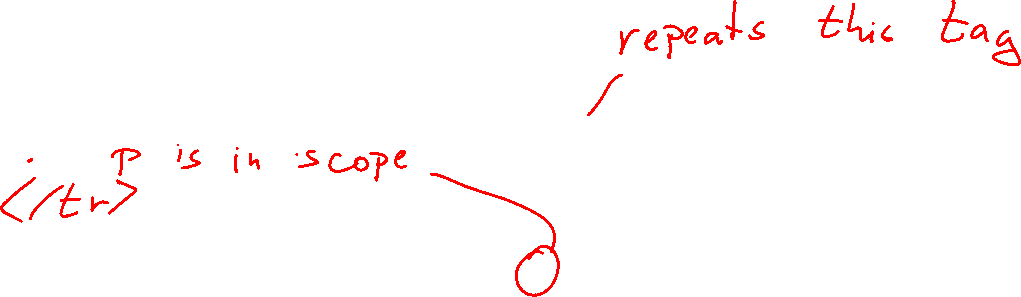 repeats this tag
p is in scope
</tr>